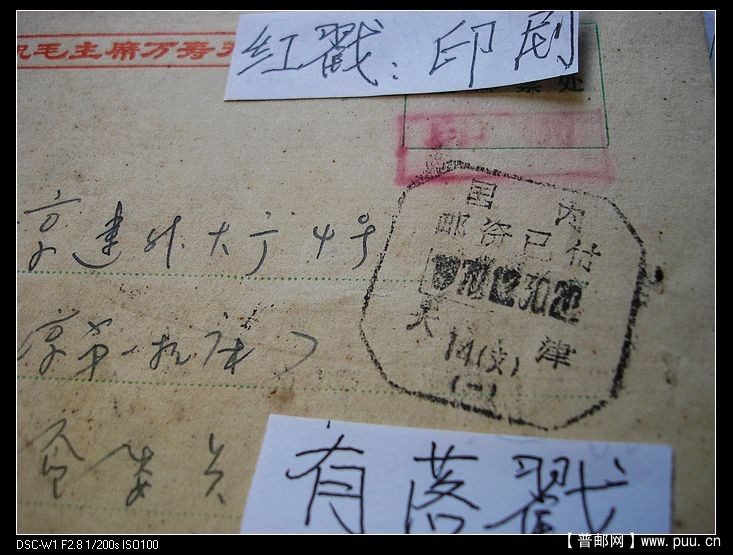 毛主席万寿无
红戳：印刷
票处
国内
邮资已付
天津
14(支)
(二)
京建外大广4号
京第一机床厂
有落戳
DSC-W1 F2.8 1/200s ISO100
【普邮网】www.puu.cn